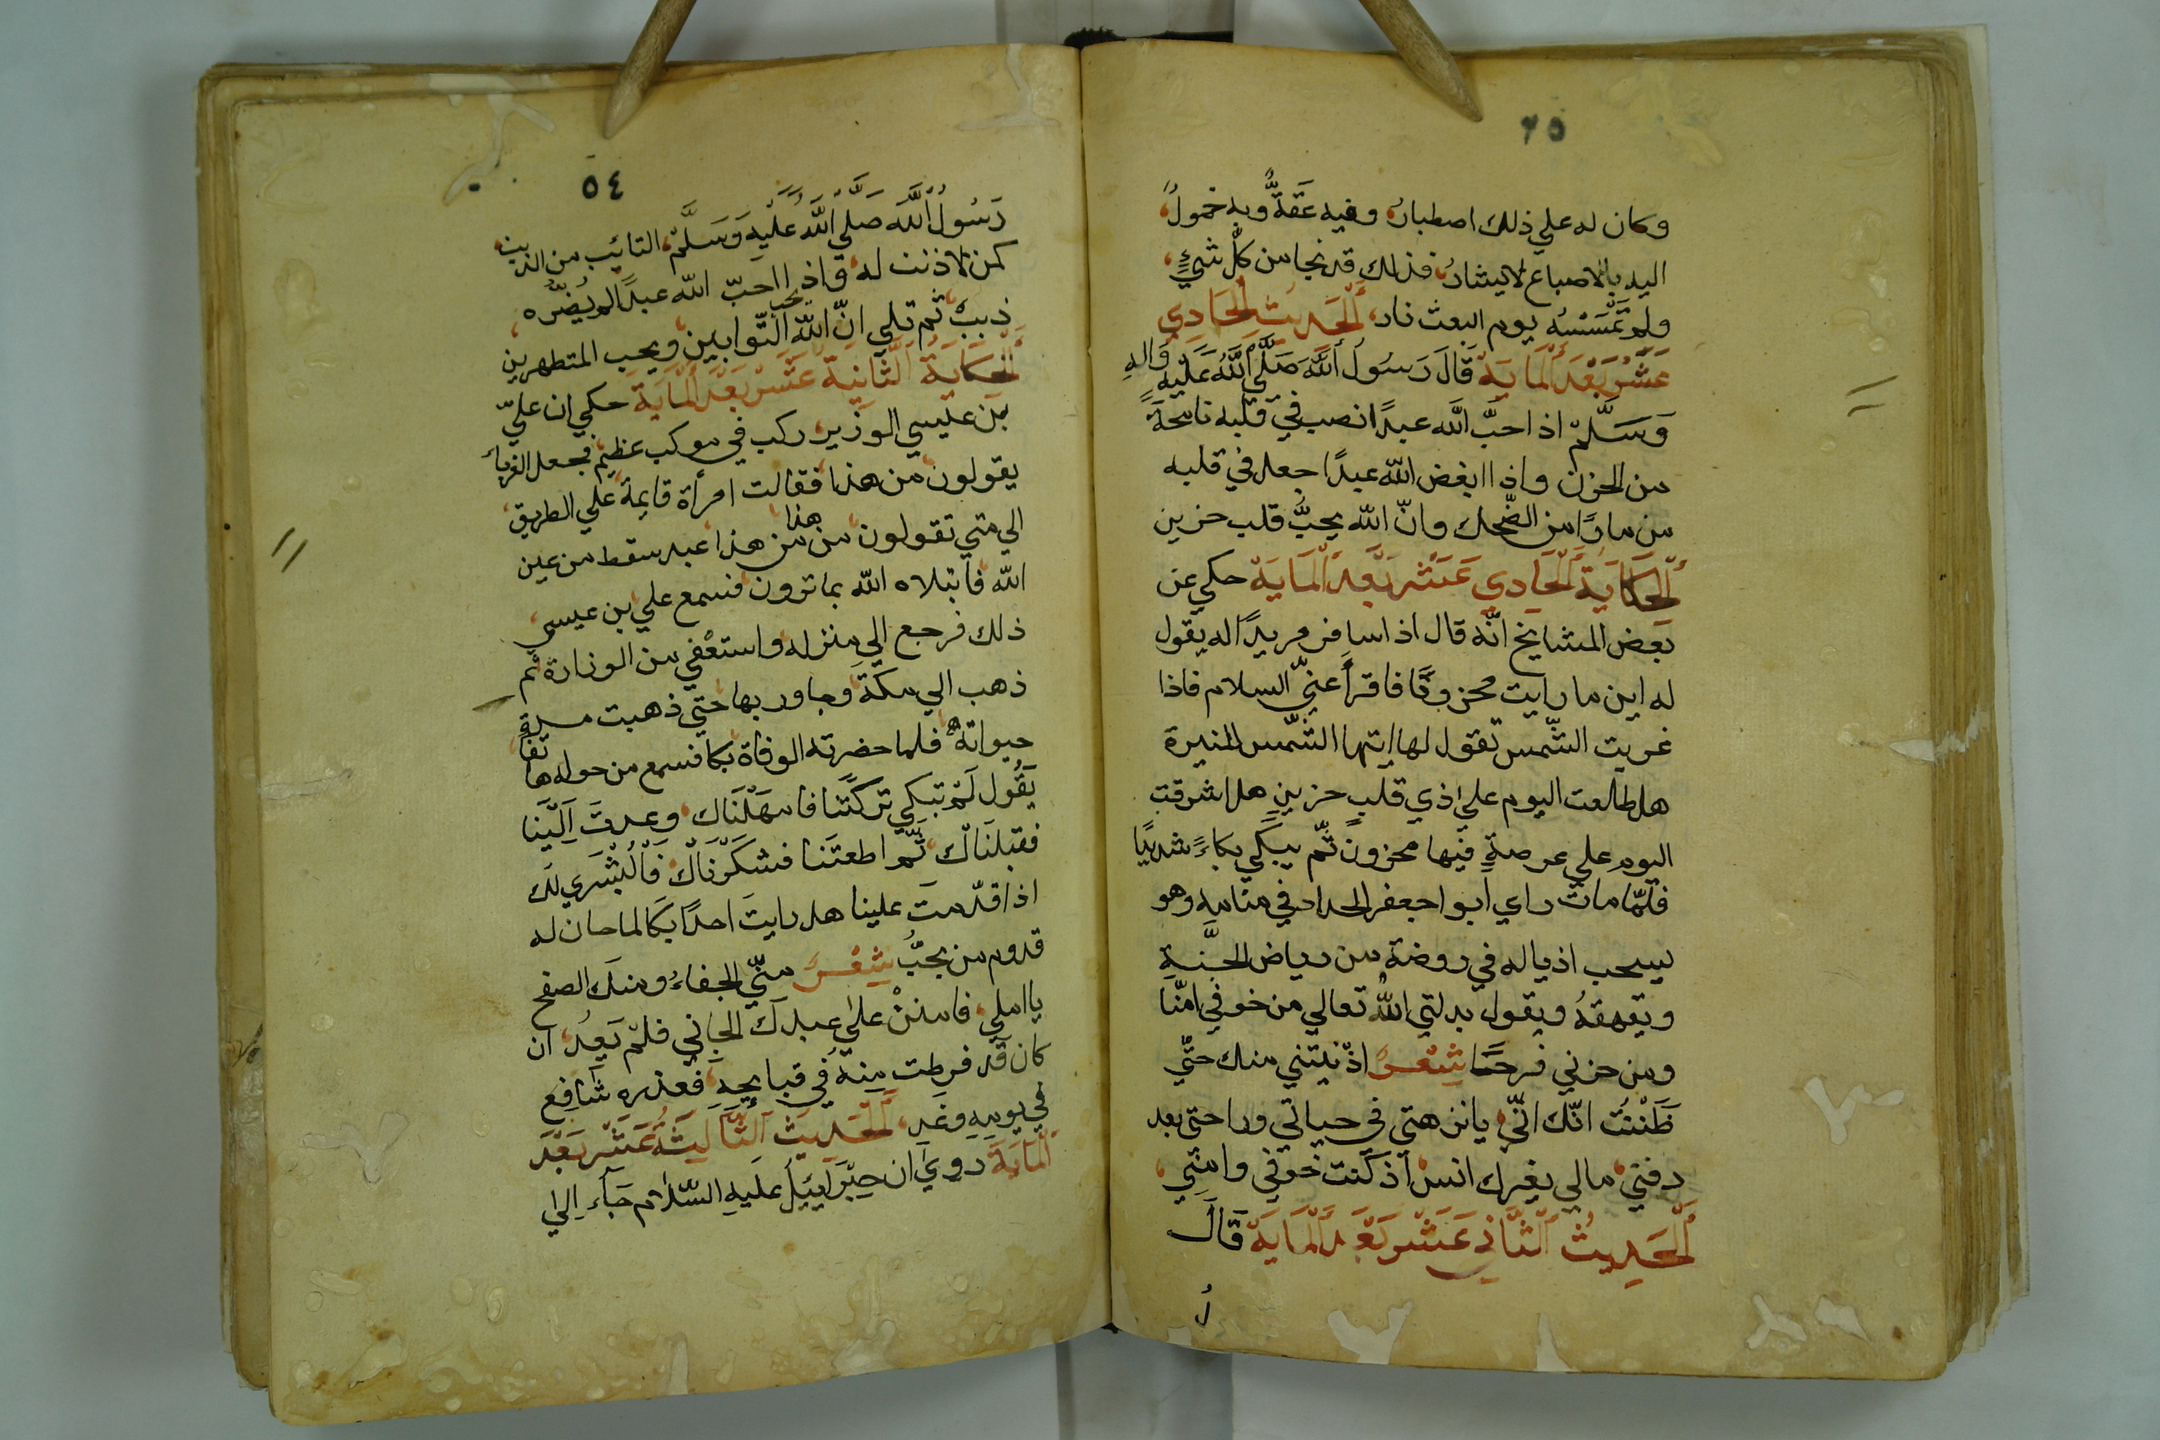 ٢٥
وكان له علي ذلك اصطبارُ وفيه عَقَةٌ وبه خمولُ
اليه بالاصباع لا يشارُ فذلك قد نجا من كلّ شيءٍ
ولم تَمْسَسْه يوم البعث نار اَلْحَدِيثُ الْحَادِي
عَشَرْ بَعْدَ اَلْمَايَةْ قَالَ رَسُولُ اللّٰهَ صَلَّي اللّٰهُ عَلَيْهِ وَالِهِ
وَسَلَّمْ اذا حبَّ اللّه عبدًا نصب في قلبه نايحةً
من الحزن واذا ابغض اللّه عبدًا جعل في قلبه
من مارًا من الضّحك وانّ اللّه يحبُّ قلب حزين
اَلْحِكَايَةُ اَلْحَادِي عَشَر بَعْدَ اَلْمَايَةْ حكي عن
بعض المشايخ انّه قال اذا سافر مريدًا له يقول
له اين ما رايت محزونًا فاقرأ عنيّ السلام فاذا
غربت الشّمس تقول لها ايتها الشّمس المنيرة
هل طالعت اليوم علي اذي قلبٍ حزين هل اشرقت
اليوم علي عرصةٍ فيها محزون ثُم يبكي بكاءً شديدًا
فلمّا مات راي ابوا جعفر الحداد في منامه وهو
يسحب اذياله في روضة من رياض الجنّةِ
ويقهقهُ ويقول بدلني اللّٰهُ تعالي من خوفي امنًا
ومن حزني فرحًا شِعْرٌ اذنيتني منك حتّي
ظَنَنْتُ انّك انّي يا نزهتي في حياتي وراحتي بعد
دفني مالي بغيرك انس اذ كنت خوفي وامني
اَلْحَدِيثُ اَلثَّانِي عَشَرْ بَعْدَ اَلْمَايَةْ قَالَ
رُ
٥٤
رَسُولُ اللّٰهَ صَلَّي اللّٰهُ عَلَيْهِ وَسَلَّمْ التائب من الذنب
كمن لا ذنب له واذا احبّ اللّه عبدًا لم يُضرّه
ذنبٌ ثم تلي انّ اللّه يحب التّوابين ويحب المتطهرين
اَلْحِكَايَةُ اَلثَّانِيَةُ عَشَرْ بَعْدَ اَلْمَايَةْ حكي ان عليّ
بن عليسي الوزير ركب في موكب عظيم فجعل الغرباء
يقولون من هذا فقالت امرأة قايمة علي الطريق
الي متي تقولون من هذا من هذا عبد سقط من عين
اللّه فابتلاه اللّه بما ترون فسمع علي بن عيسي
ذلك فرجع الي منزله واستعْفي من الوزارة ثم
ذهب الي مكة وجاور بها حتي ذهبت مدة
حيواته فلما حضرته الوفاة بكا فسمع من حوله هاتفًا
يَقُول لَمْ تبكي تركتنا فامهَلْنَاك وعدتَ اِلَيْنَا
فقبلنَاك ثُمّ اطعتَنا فشكَرْنَاكْ فَالْبُشْرَي لَك
اذا قدّمتَ علينا هل رايتَ احدًا بكا لما حان له
قدوم من يحبُّ شِعْرٌ منّي الجفاءُ ومنكَ الصفحُ
يا املي فامننْ علي عبدك الجاني فلمْ يَعِدُ ان
كان قد فرطت منهُ في قبايحهِ فعذره شافع
في يومِهِ وغَدِ اَلْحَدِيثُ اَلثَّالِيثُ عَشَرْ بَعْدَ
اَلْمَايَةْ رويَ ان جِبْرَايِيلُ عَلَيهِ السّلام جَآءَ اِلي